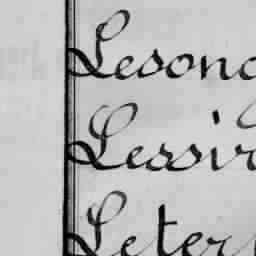 Lesonc
Lessir
Leter